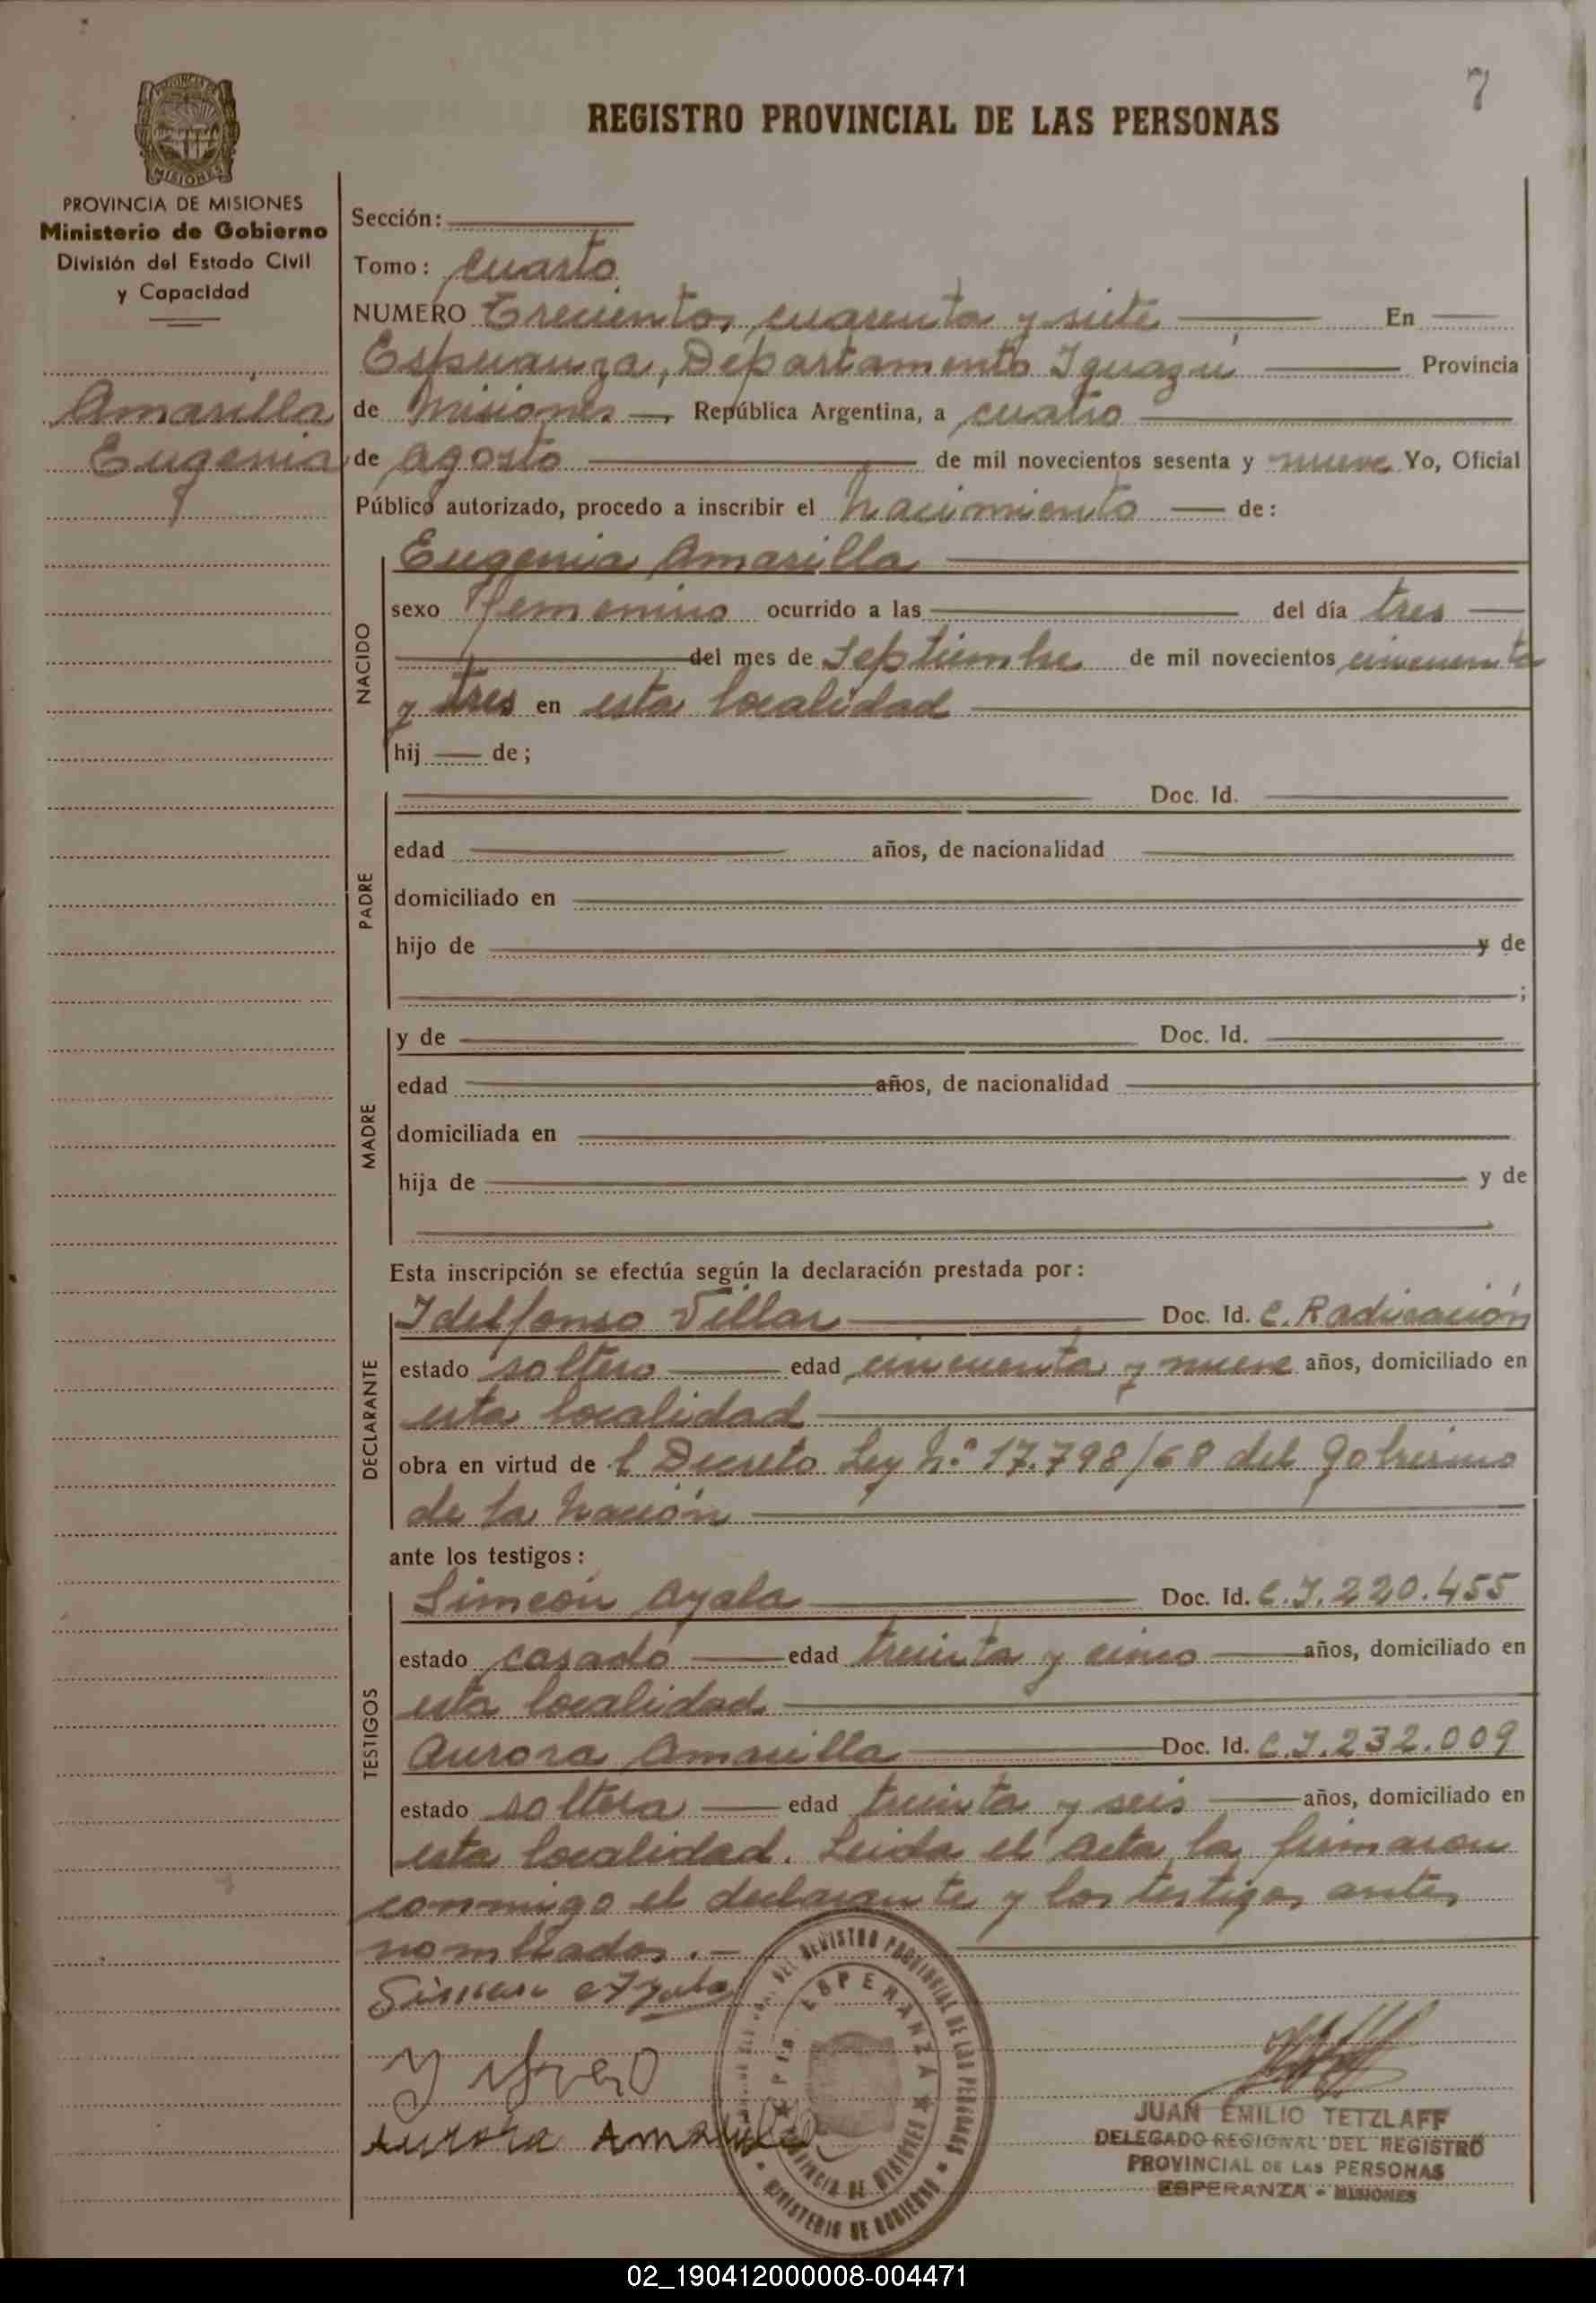 7
REGISTRO PROVINCIAL DE LAS PERSONAS
MISIONES
PROVINCIA DE MISIONES
Ministerio de Gobierno
División del Estado Civil
y Capacidad
Amarilla
Eugenia
Sección:
Tomo: cuarto
NUMERO Trecientos cuarenta y siete En
Esperanza, Departamento Iguazú Provincia
de Misiones, República Argentina, a cuatro
de agosto de mil novecientos sesenta y nueve Yo, Oficial
Público autorizado, procedo a inscribir el nacimiento de:
Eugenia Amarilla
NACIDO
sexo femenino ocurrido a las del día tres
del mes de Septiembre de mil novecientos cincuenta
y tres en esta localidad
hij de;
PADRE
Doc. Id.
edad años, de nacionalidad
domiciliado en
hijo de y de
;
MADRE
y de Doc. Id.
edad años, de nacionalidad
domiciliada en
hija de y de
Esta inscripción se efectúa según la declaración prestada por:
DECLARANTE
Idelfonso Villar Doc. Id. C. Radicación
estado soltero edad cincuenta y nueve años, domiciliado en
esta localidad
obra en virtud de l Decreto Ley N.º 17.798/68 del Gobierno
de la Nación
ante los testigos:
TESTIGOS
Simeón Ayala Doc. Id. C.I. 220.455
estado casado edad treinta y cinco años, domiciliado en
esta localidad
Aurora Amarilla Doc. Id. C.I. 232.009
estado soltera edad treinta y seis años, domiciliado en
esta localidad. Leída el acta la firmaron
conmigo el declarante y los testigos antes
nombrados.-
Simeon Ayala
Aurora Amarilla
REGISTRO PROVINCIAL DE LAS PERSONAS
ESPERANZA
PROVINCIA DE MISIONES
MINISTERIO DE GOBIERNO
JUAN EMILIO TETZLAFF
DELEGADO REGIONAL DEL REGISTRO
PROVINCIAL DE LAS PERSONAS
ESPERANZA - MISIONES
02_190412000008-004471